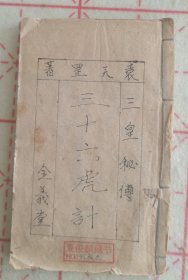 袁天罡著
三皇秘傳
三十六虎計
金義堂